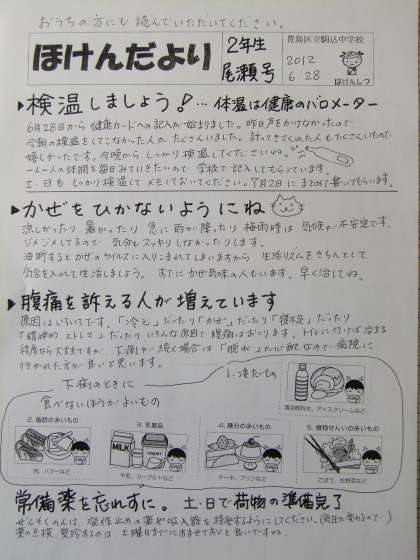 おうちの方にも読んでいただいてください。
ほけんだより
2年生
尾瀬号
豊島区立駒込中学校
2012
6.28
ほけんしつ
▶検温しましょう!…体温は健康のバロメーター
6月28日から健康カードへの記入が始まりました。昨日声をかけなかったので
今朝の検温をしてこなかった人がたくさんいました。計ってきてくれた人もたくさんいたので
嬉しかったです。今晩からしっかり検温してくださいね。
一人一人の体調を毎日みていきたいので学校で記入してもらっています。
土・日もしっかり検温してメモしておいてください。7月2日にまとめて書いてもらいます。
▶かぜをひかないようにね
涼しかったり暑かったり急に雨が降ったり梅雨時は気候が不安定です。
ジメジメしてるので気分もスッキリしなかったりします。
油断するとかぜのウイルスに入りこまれてしまいますから、生活リズムをきちんとして
気合を入れて生活しましょう。すでにかぜ気味の人もいます。早く治してね。
▶腹痛を訴える人が増えています
原因はいろいろです。「冷え」だったり「かぜ」だったり「寝不足」だったり
「精神的ストレス」だったりいろんな原因で腹痛はおこります。トイレに行けば治まる
程度なら大丈夫ですが、下痢が続く場合は「脱水」が心配なので病院に
行かれた方が良いと思います。
下痢のときに
食べないほうがよいもの
1. 冷たいもの
清涼飲料水、アイスクリームなど
2. 脂肪の多いもの
肉、バターなど
3. 乳製品
MILK
牛乳、ヨーグルトなど
4. 糖分の多いもの
ケーキ、プリンなど
5. 植物せんいの多いもの
ごぼう、生野菜など
常備薬を忘れずに。土・日で荷物の準備完了
ぜんそくの人は発作止めの薬や吸入器を持参するようにしてください。
薬の点検、受診するのは土曜日までに済ませておくと良いですね。